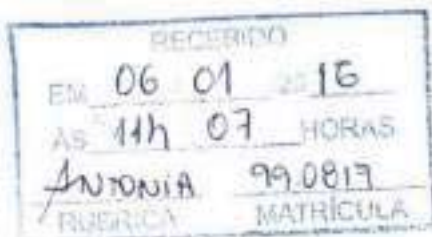 RECEBIDO
EM 06 01 20 16
ÀS 11h 07 HORAS
ANTONIA 99.0817
RUBRICA MATRÍCULA